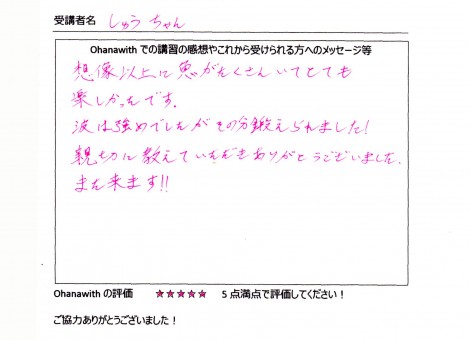 受講者名 しゅうちゃん
Ohanawith での講習の感想やこれから受けられる方へのメッセージ等
想像以上に魚がたくさんいてとても
楽しかったです.
波は強めでしたがその分鍛えられました!
親切に教えていただきありがとうございました.
また来ます!!
Ohanawith の評価 ★★★★★ 5 点満点で評価してください！
ご協力ありがとうございました！